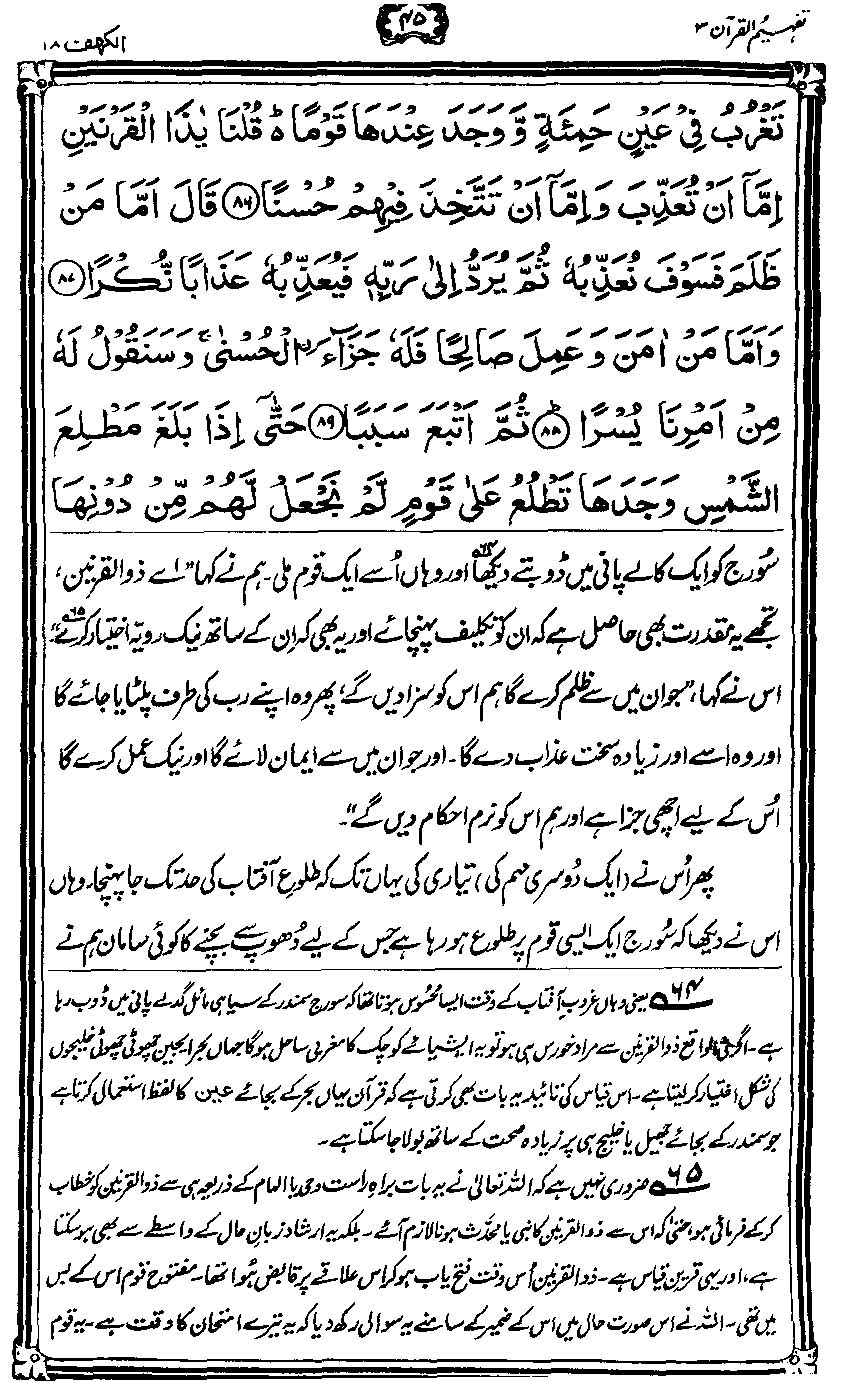 تفہیم القرآن ۳
۴۵
الکہف ۱۸
تَغْرُبُ فِیْ عَیْنٍ حَمِئَةٍ وَّ وَجَدَ عِنْدَهَا قَوْمًا ۬ؕ قُلْنَا یٰذَا الْقَرْنَیْنِ
اِمَّاۤ اَنْ تُعَذِّبَ وَ اِمَّاۤ اَنْ تَتَّخِذَ فِیْهِمْ حُسْنًا ﴿۸۶﴾ قَالَ اَمَّا مَنْ
ظَلَمَ فَسَوْفَ نُعَذِّبُهٗ ثُمَّ یُرَدُّ اِلٰی رَبِّهٖ فَیُعَذِّبُهٗ عَذَابًا نُّكْرًا ﴿۸۷﴾
وَ اَمَّا مَنْ اٰمَنَ وَ عَمِلَ صَالِحًا فَلَهٗ جَزَآءَ اِ۟لْحُسْنٰی ۚ وَ سَنَقُوْلُ لَهٗ
مِنْ اَمْرِنَا یُسْرًا ﴿۸۸﴾ؕ ثُمَّ اَتْبَعَ سَبَبًا ﴿۸۹﴾ حَتّٰۤی اِذَا بَلَغَ مَطْلِعَ
الشَّمْسِ وَجَدَهَا تَطْلُعُ عَلٰی قَوْمٍ لَّمْ نَجْعَلْ لَّهُمْ مِّنْ دُوْنِهَا
سُورج کو ایک کالے پانی میں ڈوبتے دیکھا۶۴ اور وہاں اُسے ایک قوم ملی۔ ہم نے کہا ”اے ذوالقرنین،
تجھے یہ مقدرت بھی حاصل ہے کہ ان کو تکلیف پہنچائے اور یہ بھی کہ اِن کے ساتھ نیک رویّہ اختیار کرے“۶۵
اس نے کہا، ”جو ان میں سے ظلم کرے گا ہم اس کو سزا دیں گے، پھر وہ اپنے رب کی طرف پلٹایا جائے گا
اور وہ اسے اور زیادہ سخت عذاب دے گا۔ اور جو ان میں سے ایمان لائے گا اور نیک عمل کرے گا
اُس کے لیے اچھی جزا ہے اور ہم اس کو نرم احکام دیں گے“۔
پھر اُس نے (ایک دُوسری مہم کی) تیاری کی یہاں تک کہ طلوعِ آفتاب کی حد تک جا پہنچا۔ وہاں
اس نے دیکھا کہ سُورج ایک ایسی قوم پر طلوع ہو رہا ہے جس کے لیے دُھوپ سے بچنے کا کوئی سامان ہم نے
۶۴ یعنی وہاں غروبِ آفتاب کے وقت ایسا محسُوس ہوتا تھا کہ سورج سمندر کے سیاہی مائل گدلے پانی میں ڈوب رہا
ہے۔ اگر فی الواقع ذوالقرنین سے مراد خورس ہی ہو تو یہ ایشیائے کوچک کا مغربی ساحل ہوگا جہاں بحر ایجین چھوٹی چھوٹی خلیجوں
کی شکل اختیار کر لیتا ہے۔ اس قیاس کی تائید یہ بات بھی کرتی ہے کہ قرآن یہاں بحر کے بجائے عین کا لفظ استعمال کرتا ہے
جو سمندر کے بجائے جھیل یا خلیج ہی پر زیادہ صحت کے ساتھ بولا جا سکتا ہے۔
۶۵ ضروری نہیں ہے کہ اللہ تعالیٰ نے یہ بات براہِ راست وحی یا الہام کے ذریعہ ہی سے ذوالقرنین کو خطاب
کر کے فرمائی ہو، حتیٰ کہ اس سے ذوالقرنین کا نبی یا محدَّث ہونا لازم آئے۔ بلکہ یہ ارشاد زبانِ حال کے واسطے سے بھی ہو سکتا
ہے، اور یہی قرینِ قیاس ہے۔ ذوالقرنین اُس وقت فتح یاب ہو کر اس علاقے پر قابض ہُوا تھا۔ مفتوح قوم اس کے بس
میں تھی۔ اللہ نے اس صورتِ حال میں اس کے ضمیر کے سامنے یہ سوال رکھ دیا کہ یہ تیرے امتحان کا وقت ہے۔ یہ قوم